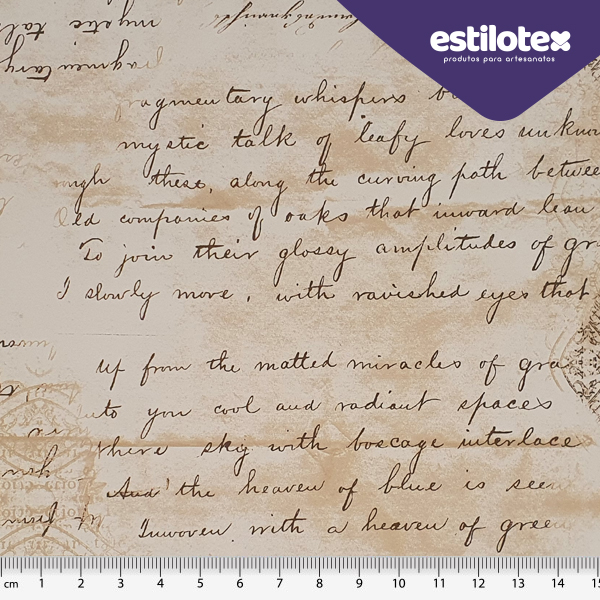 estilotex
produtos para artesanatos
mystic talk
fragmentary
fragmentary whispers
mystic talk of leafy loves unknow
these, along the curving path betwee
Led companies of oaks that inward lean
To join their glossy amplitudes of gr
I slowly move, with ravished eyes that
Up from the matted miracles of gra
to you cool and radiant spaces
there sky with boscage interlace
And the heaven of blue is seen
Inwoven with a heaven of green
cm 1 2 3 4 5 6 7 8 9 10 11 12 13 14 15